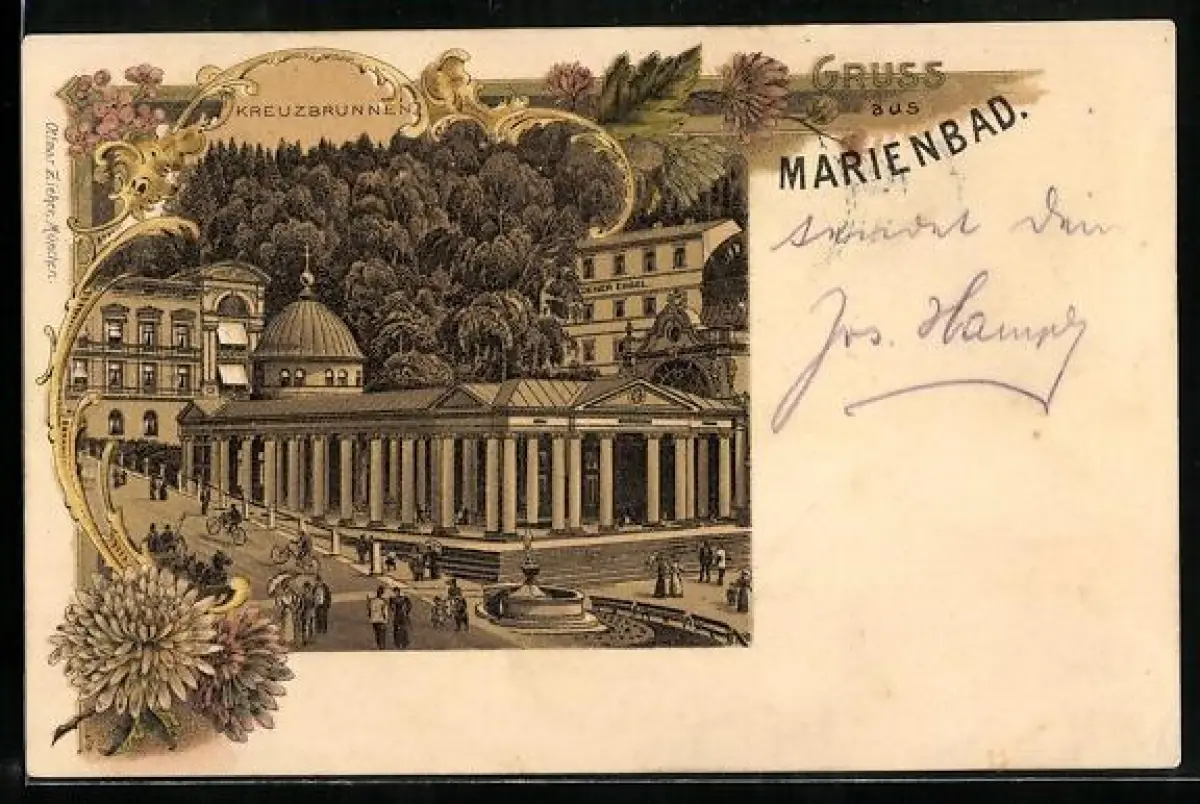 KREUZBRUNNEN
GRUSS
aus
MARIENBAD.
sendet Dein
Jos. Hampl
Ottmar Zieher, München.
ENGEL